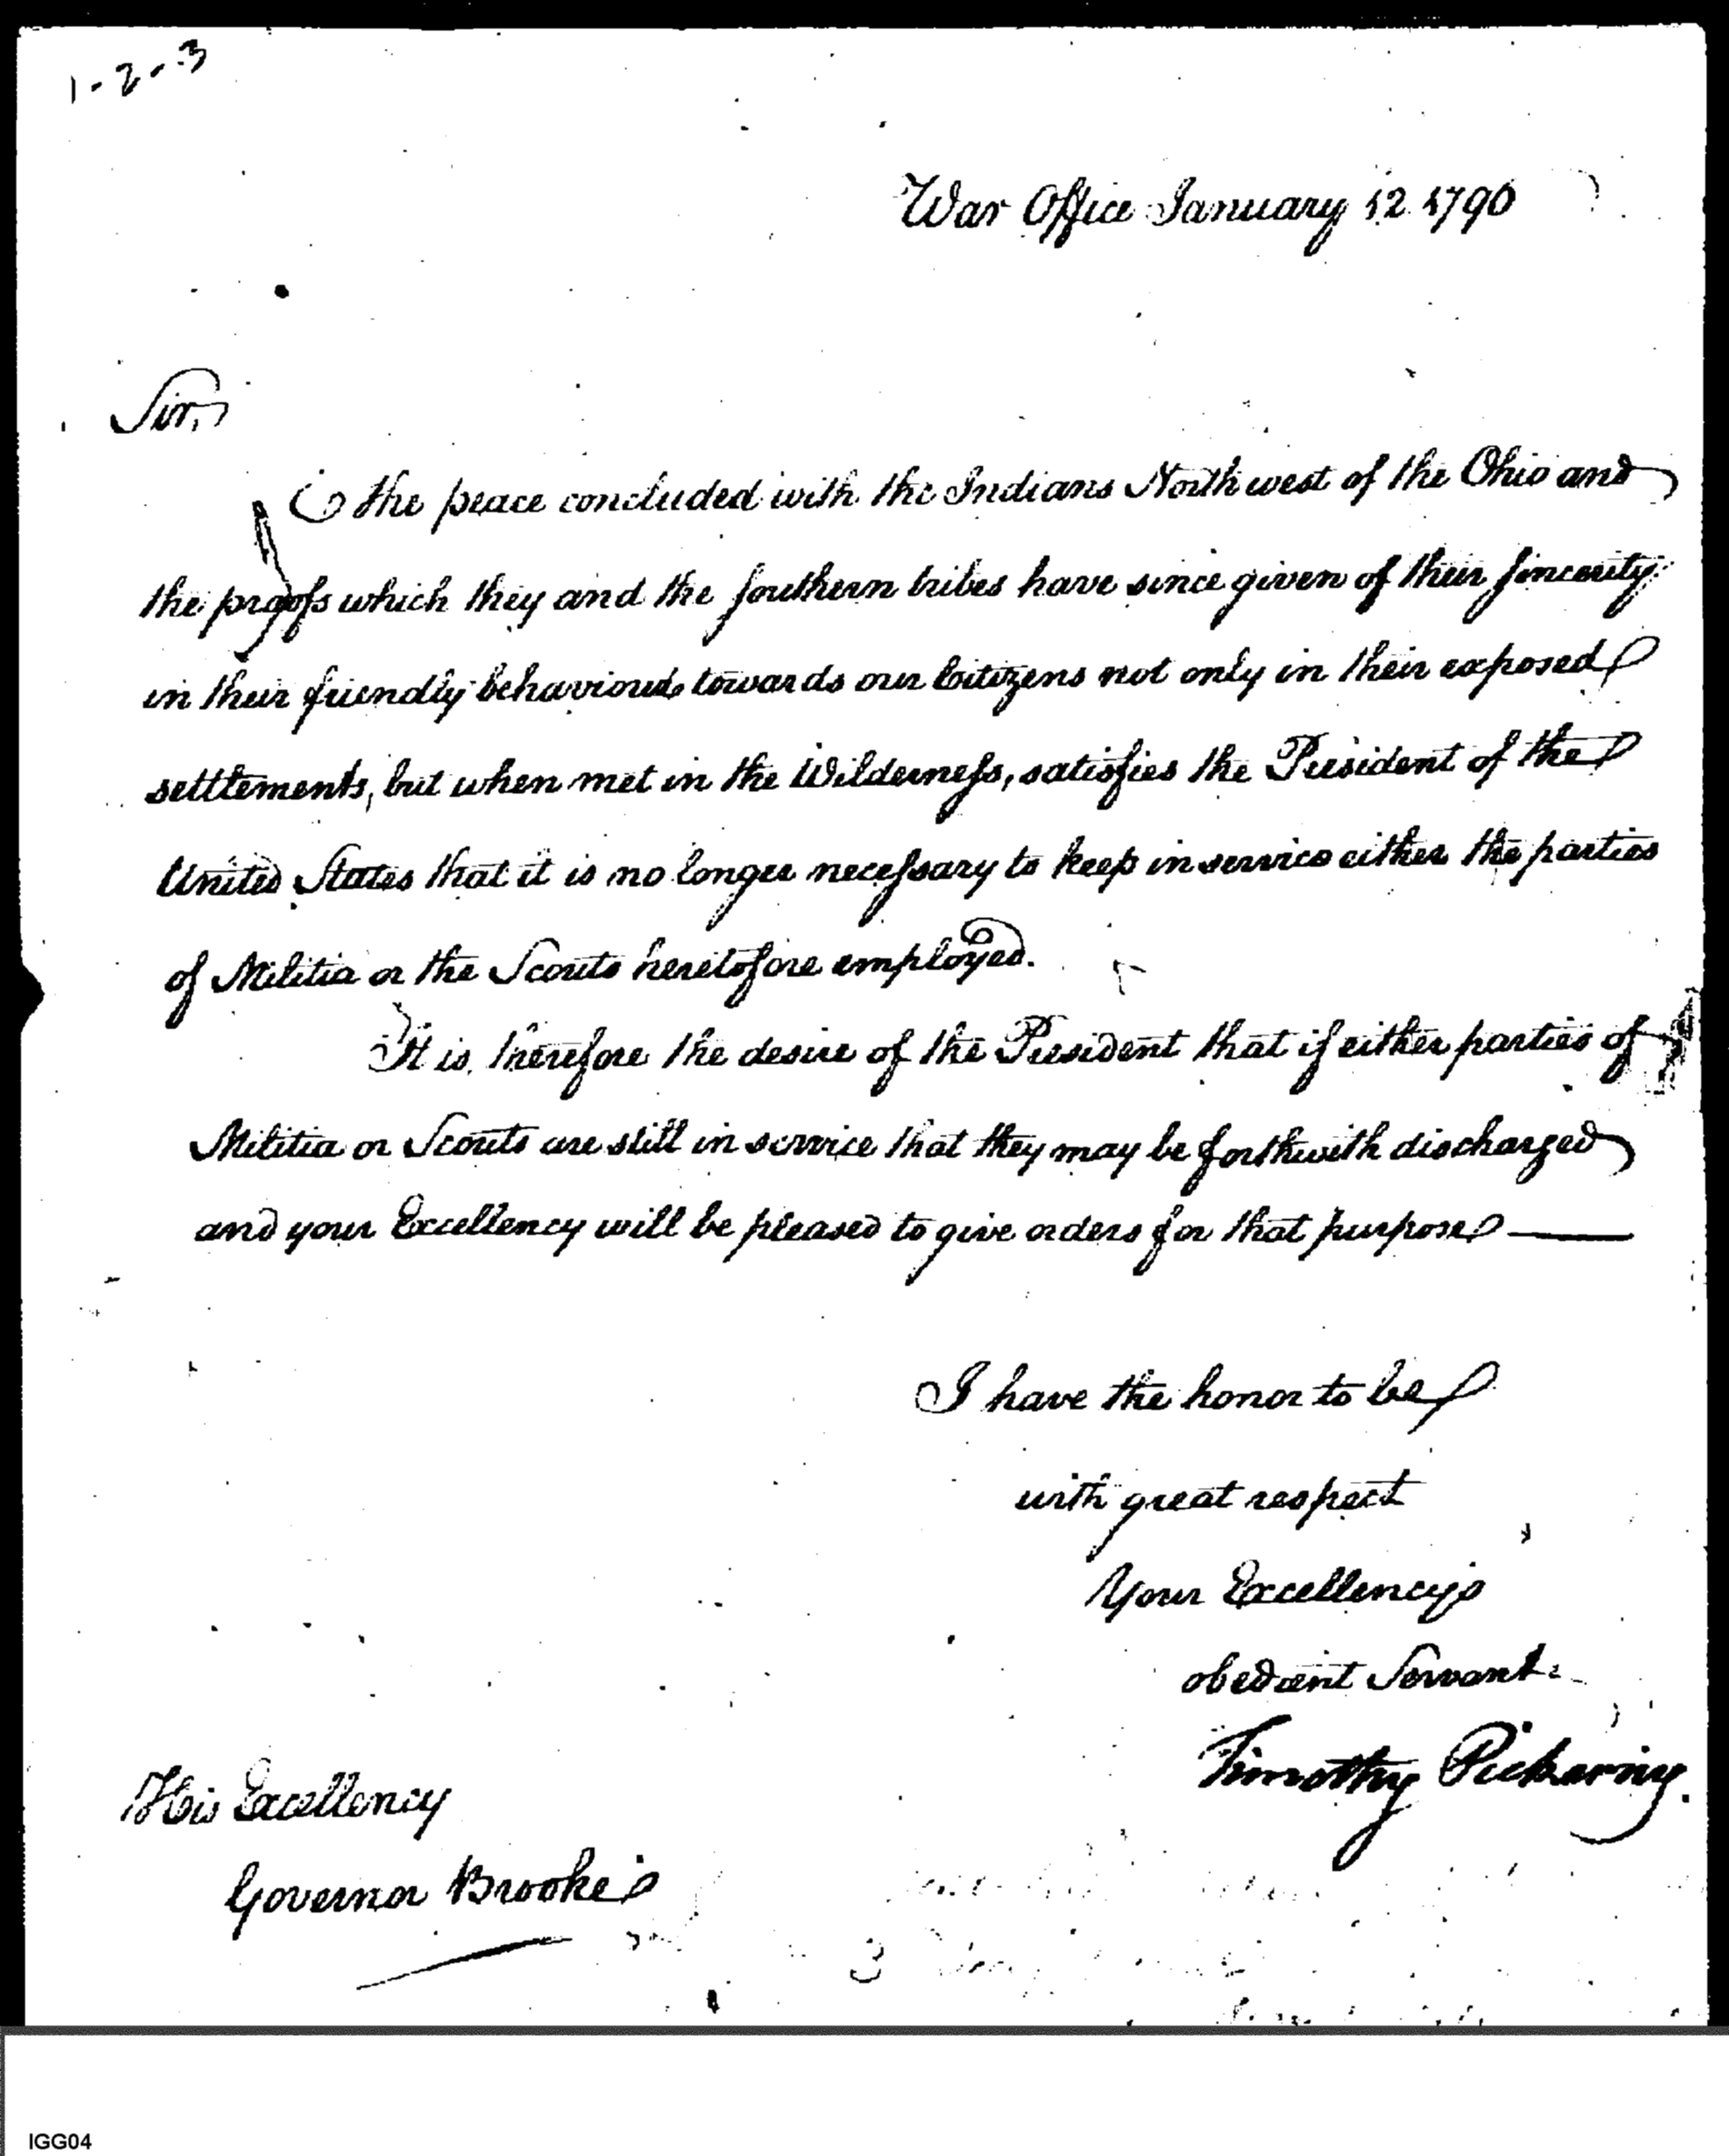 1-2-3
War Office January 12 1790
Sir,
The peace concluded with the Indians North west of the Ohio and
the proofs which they and the southern tribes have since given of their sincerity
in their friendly behaviour towards our Citizens not only in their exposed
settlements, but when met in the Wilderness, satisfies the President of the
United States that it is no longer necessary to keep in service either the parties
of Militia or the Scouts heretofore employed.
It is therefore the desire of the President that if either parties of
Militia or Scouts are still in service that they may be forthwith discharged
and your Excellency will be pleased to give orders for that purpose
I have the honor to be
with great respect
Your Excellency's
obedient Servant
Timothy Pickering.
His Excellency
Governor Brooke
IGG04